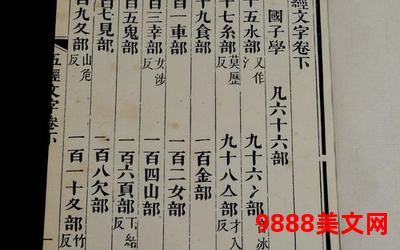 經文字卷下
國子學
凡六十六部
十五水部 又作
九十六冫部 冰
十七糸部 莫歷反
九十八亼部 才入反
十九食部
一百金部
百一車部
一百二女部
百三幸部 女涉反
一百四山部
百五鬼部
一百六頁部 下結
百七見部
一百八欠部
百九夊部 山危反
一百一十夂部 竹
五經文字卷下
9888美文网